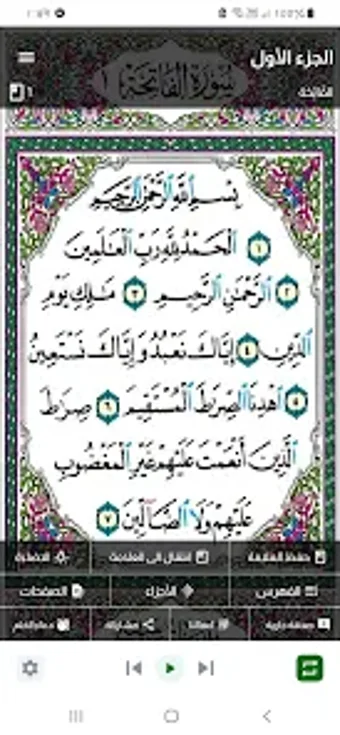 الجزء الأول
سُورَةُ الْفَاتِحَةِ
الفاتحة
١
بِسْمِ ٱللَّهِ ٱلرَّحْمَٰنِ ٱلرَّحِيمِ
١ ٱلْحَمْدُ لِلَّهِ رَبِّ ٱلْعَٰلَمِينَ
٢ ٱلرَّحْمَٰنِ ٱلرَّحِيمِ ٣ مَٰلِكِ يَوْمِ
ٱلدِّينِ ٤ إِيَّاكَ نَعْبُدُ وَإِيَّاكَ نَسْتَعِينُ
٥ ٱهْدِنَا ٱلصِّرَٰطَ ٱلْمُسْتَقِيمَ ٦ صِرَٰطَ
ٱلَّذِينَ أَنْعَمْتَ عَلَيْهِمْ غَيْرِ ٱلْمَغْضُوبِ
عَلَيْهِمْ وَلَا ٱلضَّآلِّينَ ٧
حفظ العلامة انتقال إلى العلامة الاضاءة
الفهرس الأجزاء الصفحات
صدقة جارية مشاركة